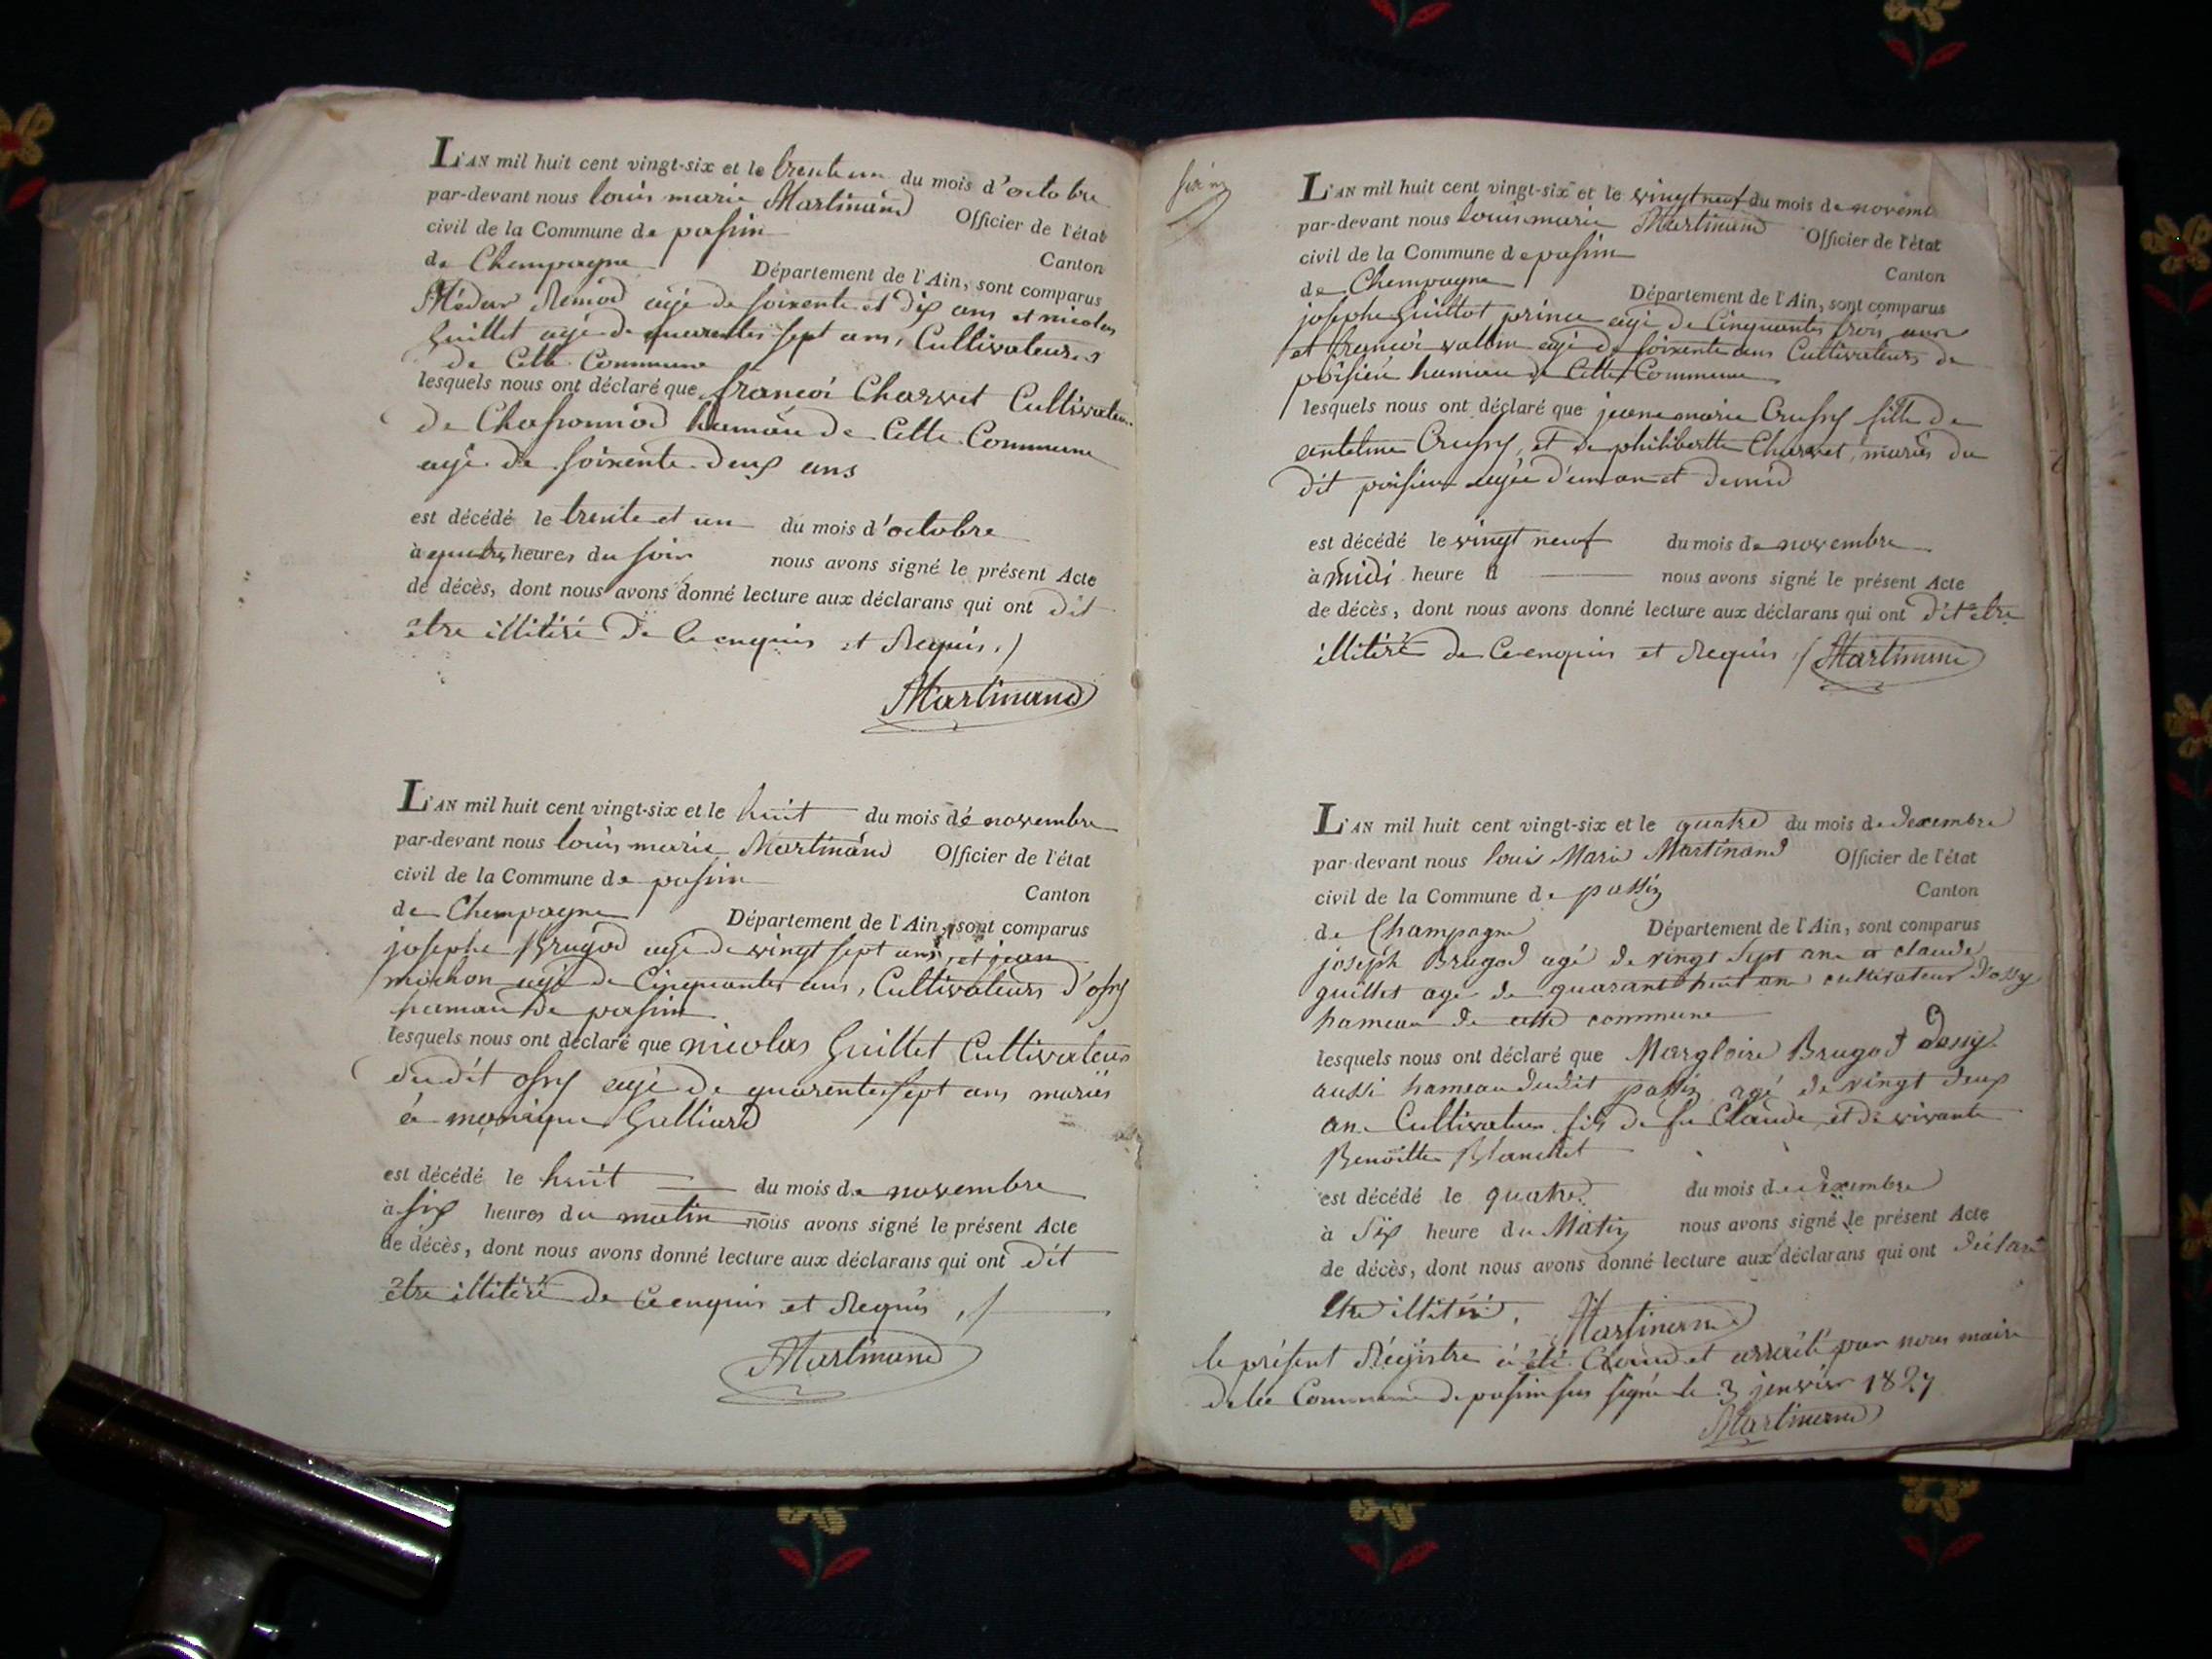 L'AN mil huit cent vingt-six et le trente un du mois d'octobre
par-devant nous louis marie Martinand Officier de l'état
civil de la Commune de pasin Canton
de Chempagne Département de l'Ain, sont comparus
Médar Remod agé de soixente et dix ans et nicolas
Guillet agé de quarentes sept ans, Cultivateurs
de Cette Commune
lesquels nous ont déclaré que francoi Charvet Cultivateur
de Chassonnod hamau de Cette Commune
agé de soixente deux ans
est décédé le trente et un du mois d'octobre
à quatres heures du soir nous avons signé le présent Acte
de décès, dont nous avons donné lecture aux déclarans qui ont dit
etre illitéré de Ce enquis et Requis ./
Martinand
L'AN mil huit cent vingt-six et le huit du mois de novembre
par-devant nous louis marie Martinand Officier de l'état
civil de la Commune de pasin Canton
de Chempagne Département de l'Ain, sont comparus
josephe Brugod agé de vingt sept ans, et jean
michon agé de Cinquantes ans, Cultivateurs d'ossy
hamau de pasin
lesquels nous ont déclaré que nicolas Guillet Cultivateur
du dit ossy agé de quarentes sept ans mariés
à monique Galliard
est décédé le huit du mois de novembre
à six heures du matin nous avons signé le présent Acte
de décès, dont nous avons donné lecture aux déclarans qui ont dit
etre illitéré de Ce enquis et Requis ,/
Martinand
L'AN mil huit cent vingt-six et le vingt neuf du mois de novemb
par-devant nous louis marie Martinand Officier de l'état
civil de la Commune de pasin Canton
de Chempagne Département de l'Ain, sont comparus
josephe Guillot prince agé de Cinquantes trois ans
et francoi vallin agé de soixente ans Cultivateurs de
poisieu hamau de Cette Commune
lesquels nous ont déclaré que jeane marie Crussy fille de
antelme Crussy, et de philibertte Charvet, mariés du
dit poisieu agée d'un an et demid
est décédé le vingt neuf du mois de novembre
à midi heure d nous avons signé le présent Acte
de décès, dont nous avons donné lecture aux déclarans qui ont dit etre
illitéré de Ce enquis et Requis ./ Martinand
L'AN mil huit cent vingt-six et le quatre du mois de decembre
par-devant nous louis Marie Martinand Officier de l'état
civil de la Commune de passin Canton
de Champagne Département de l'Ain, sont comparus
joseph Brugod agé de vingt sept ans et claude
guillet age de quarant huit an cultivateur d'ossy
hameau de cette commune
lesquels nous ont déclaré que Margloire Brugod dossy
aussi hameau dudit passin agé de vingt deux
an Cultivateur fils de feu Claude et de vivante
Benoitte Blanchet
est décédé le quatre du mois de decembre
à Six heure du Matin nous avons signé le présent Acte
de décès, dont nous avons donné lecture aux déclarans qui ont déclaré
Etre illitéré. Martinand
le présent Régistre à été Clos et arreté par nous maire
de la Commune de pasin sus signé le 3 jenvier 1827
Martinand